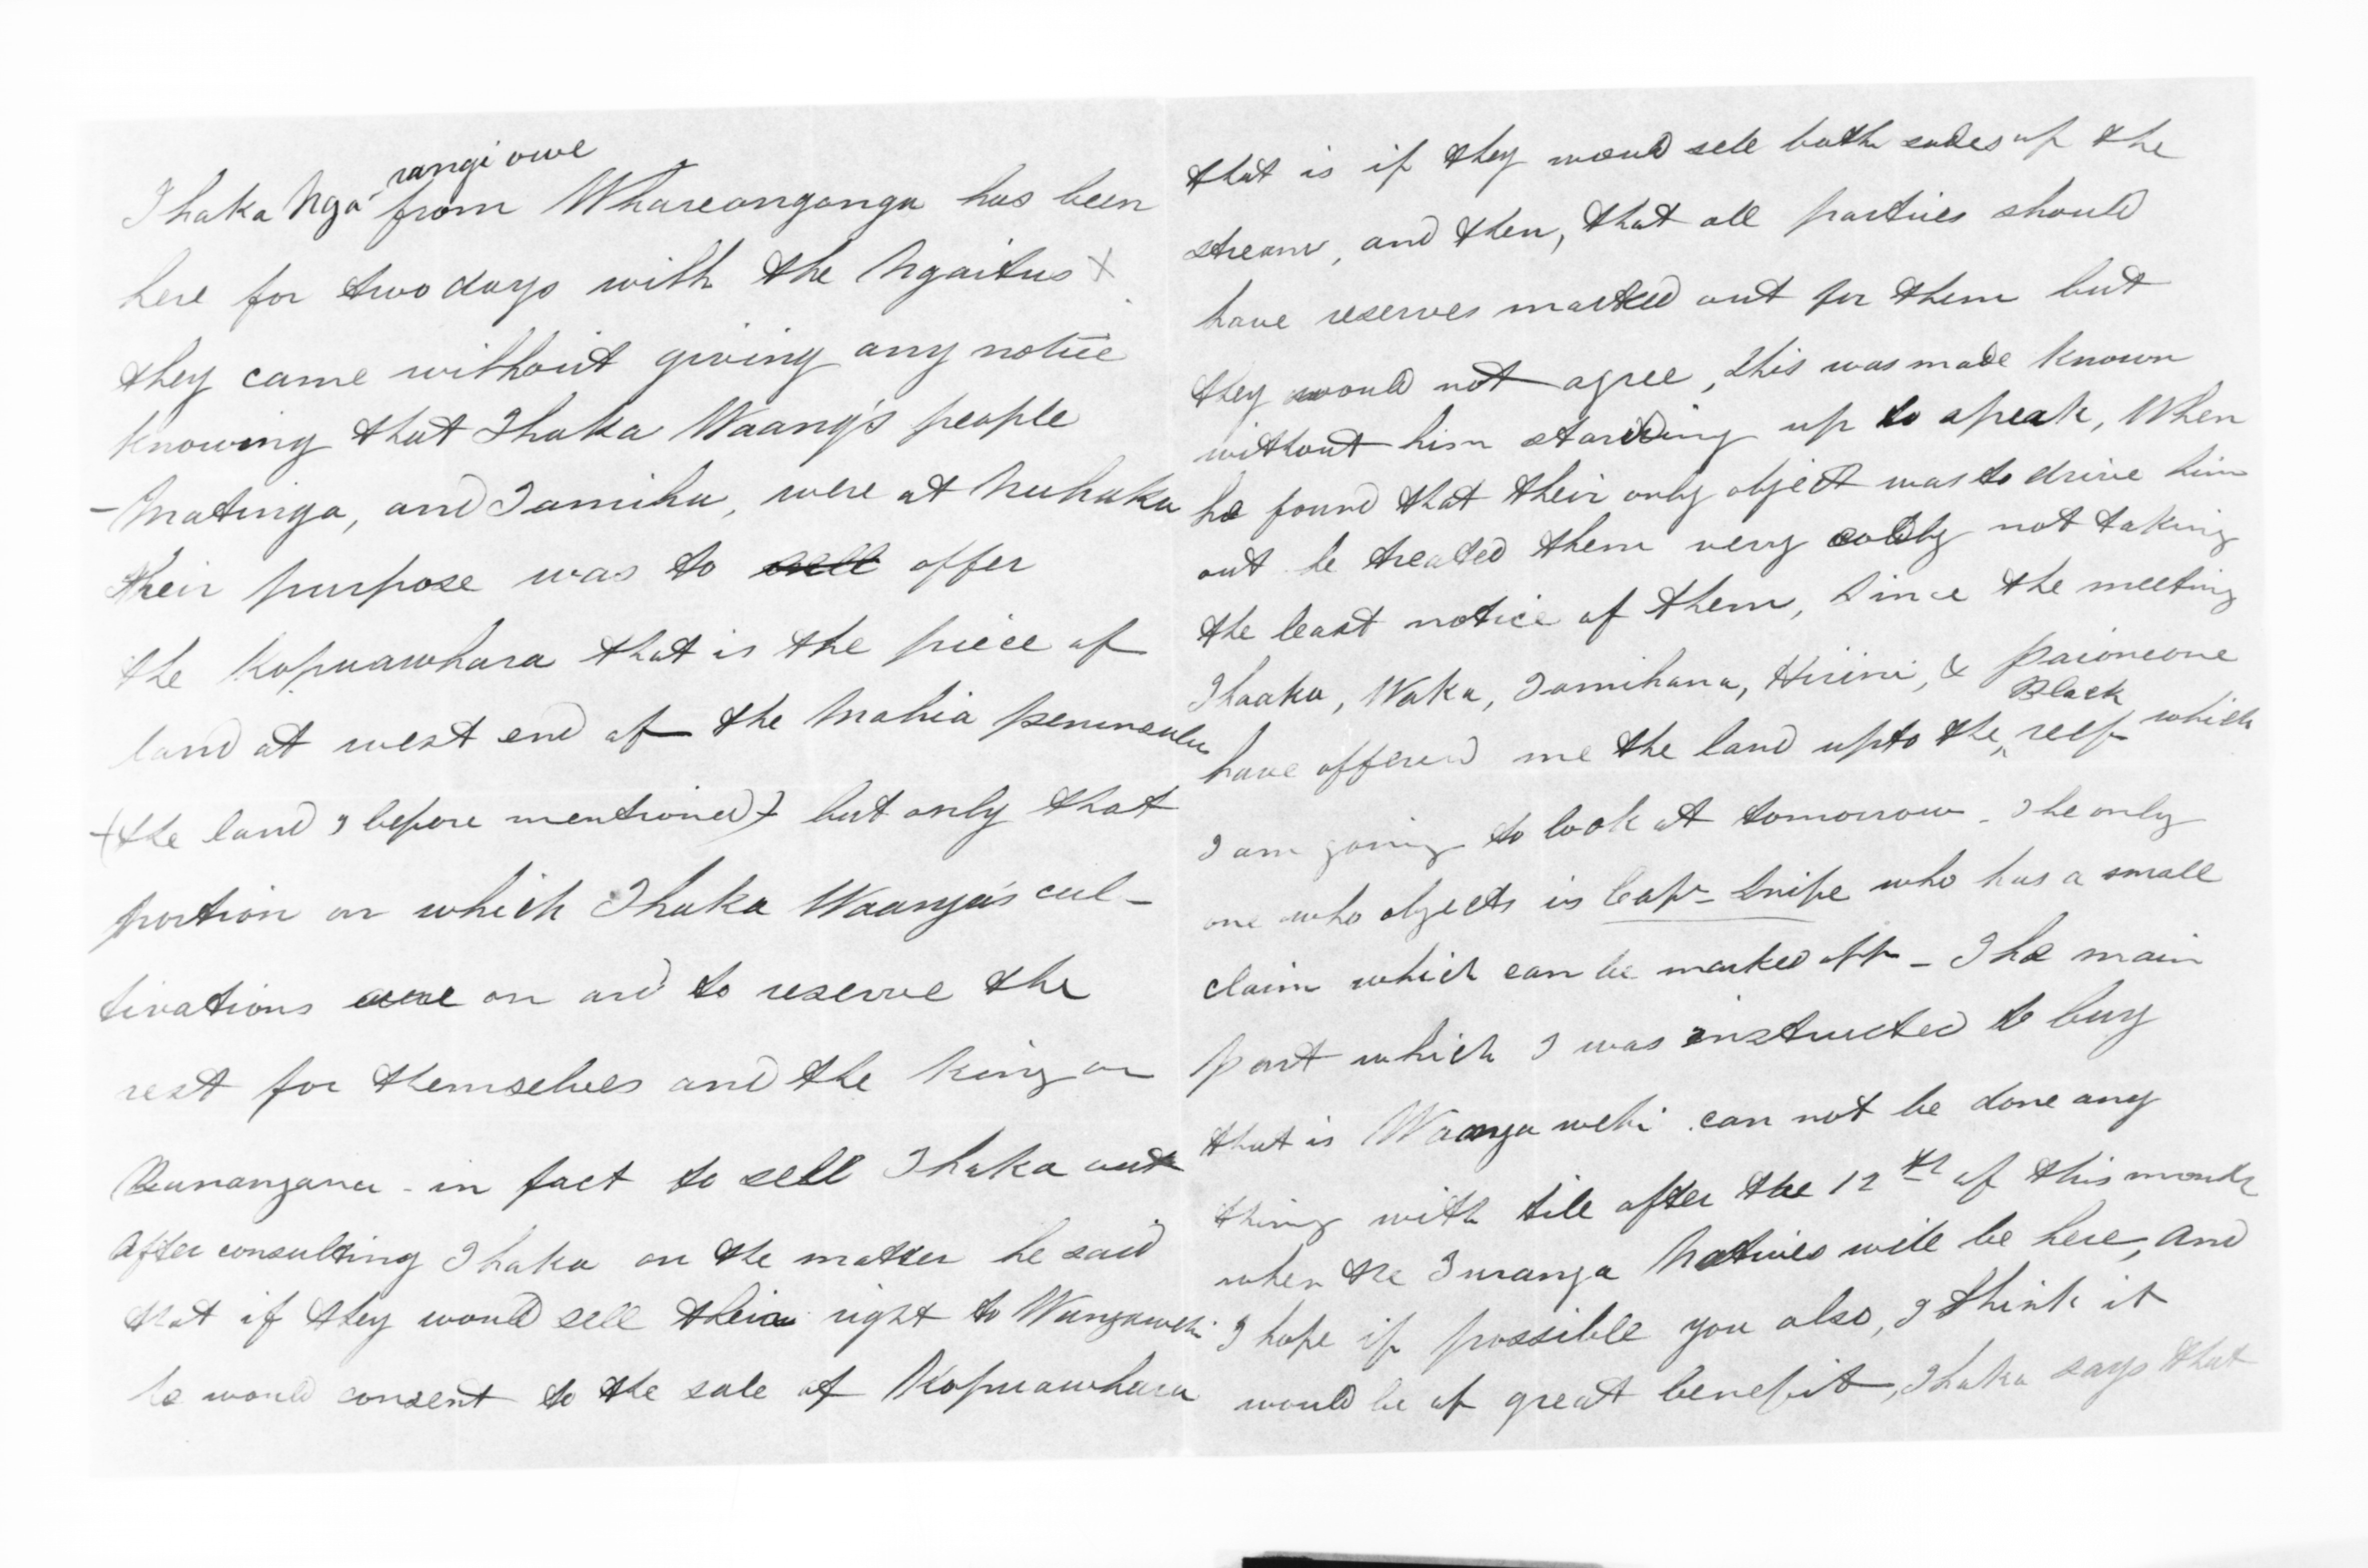 rangi owe
Ihaka Nga- from Whareongonga has been
here for two days with the Ngaitus X
they came without giving any notice
knowing that Ihaka Waang's people
- Matinga, and Tamihu, were at Nuhaka
their purpose was to sell offer
the Kopuawhara that is the piece of
land at west end of the Mahia peninsula
(the land I before mentioned) but only that
portion on which Ihaka Waanga's cul-
tivations are on and to reserve the
rest for themselves and the King or
Runanganu - in fact to sell Ihaka out
After consulting Ihaka on the matter he said
that if they would sell their right to Wangawehi
he would consent to the sale of Kopuawhara
that is if they would sell both sides of the
stream, and then, that all parties should
have reserves marked out for them but
they would not agree, this was made known
without him standing up to speak, When
he found that their only object was to drive him
out he treated them very coldly not taking
the least notice of them, Since the meeting
Ihaaka, Waka, Tamihana, Hirini, & Paioneone
Black
have offered me the land up to the reef which
I am going to look at tomorrow - The only
one who objects is Cap- Snipe who has a small
claim which can be marked off - The main
part which I was instructed to buy
that is Waanga wehi can not be done any
thing with till after the 12th of this month
when the Turanga Natives will be here, and
I hope if possible you also, I think it
would be of great benefit, Ihaka says that